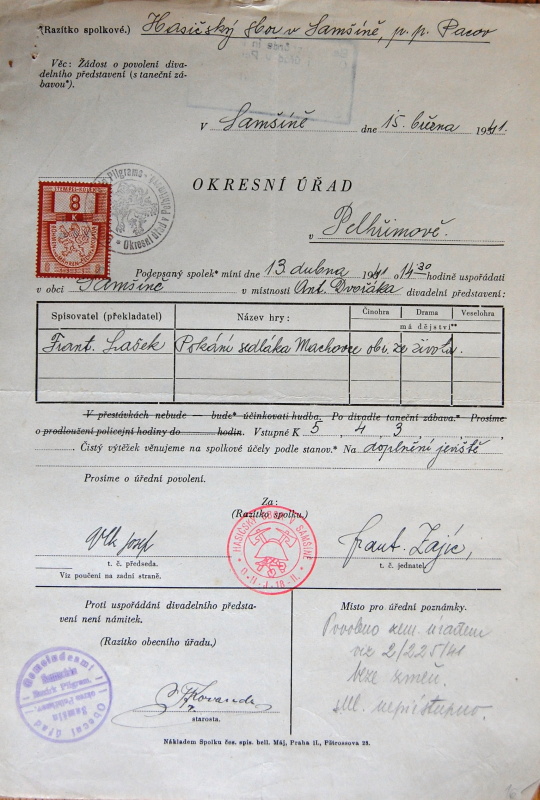 (Razítko spolkové.) Hasičský sbor v Samšíně, p. p. Pacov
Věc: Žádost o povolení diva-
delního představení (s taneční zá-
bavou*).
V Samšíně dne 15. března 1941.
OKRESNÍ ÚŘAD
v Pelhřimově.
8
K
Podepsaný spolek* míní dne 13. dubna 1941 o 14 30 hodině uspořádati
v obci Samšíně v místnosti Ant. Dvořáka divadelní představení:
Spisovatel (překladatel) Název hry: Činohra Drama Veselohra
má dějství**
Frant. Lašek Pokání sedláka Machovce obr. ze života.
V přestávkách nebude — bude* účinkovati hudba. Po divadle taneční zábava.* Prosíme
o prodloužení policejní hodiny do hodin. Vstupné K 5, 4, 3
Čistý výtěžek věnujeme na spolkové účely podle stanov.* Na doplnění jeviště
Prosíme o úřední povolení.
Za:
(Razítko spolku.)
HASIČSKÝ SBOR V SAMŠÍNĚ
Vlk Josef Frant. Zajíc,
t. č. předseda. t. č. jednatel.
Viz poučení na zadní straně.
Proti uspořádání divadelního předsta-
vení není námitek.
(Razítko obecního úřadu.)
Místo pro úřední poznámky.
Povoleno zem. úřadem
viz 2/225/41
beze změn.
ml. nepřístupno.
Gemeindeamt
Bezirk Pilgram.
Samšín
Obecní úřad
Kovanda
starosta.
Nákladem Spolku čes. spis. bell. Máj, Praha II., Pštrossova 23.